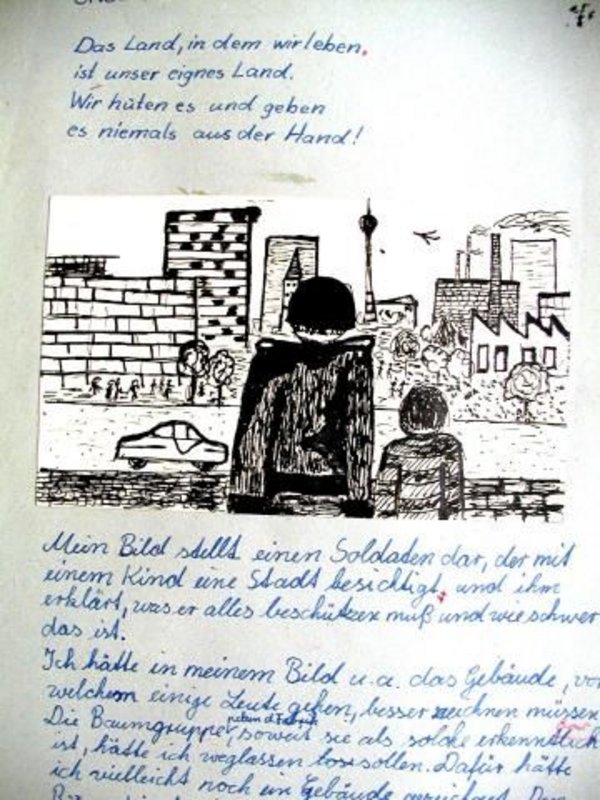 Das Land, in dem wir leben,
ist unser eignes Land.
Wir hüten es und geben
es niemals aus der Hand!
Mein Bild stellt einen Soldaten dar, der mit
einem Kind eine Stadt besichtigt, und ihm
erklärt, was er alles beschützen muß und wie schwer
das ist.
Ich hätte in meinem Bild u.a. das Gebäude, vor
welchem einige Leute gehen, besser zeichnen müssen.
Die Baumgruppe, soweit sie als solche erkenntlich
ist, hätte ich weglassen sollen. Dafür hätte
ich vielleicht noch ein Gebäude